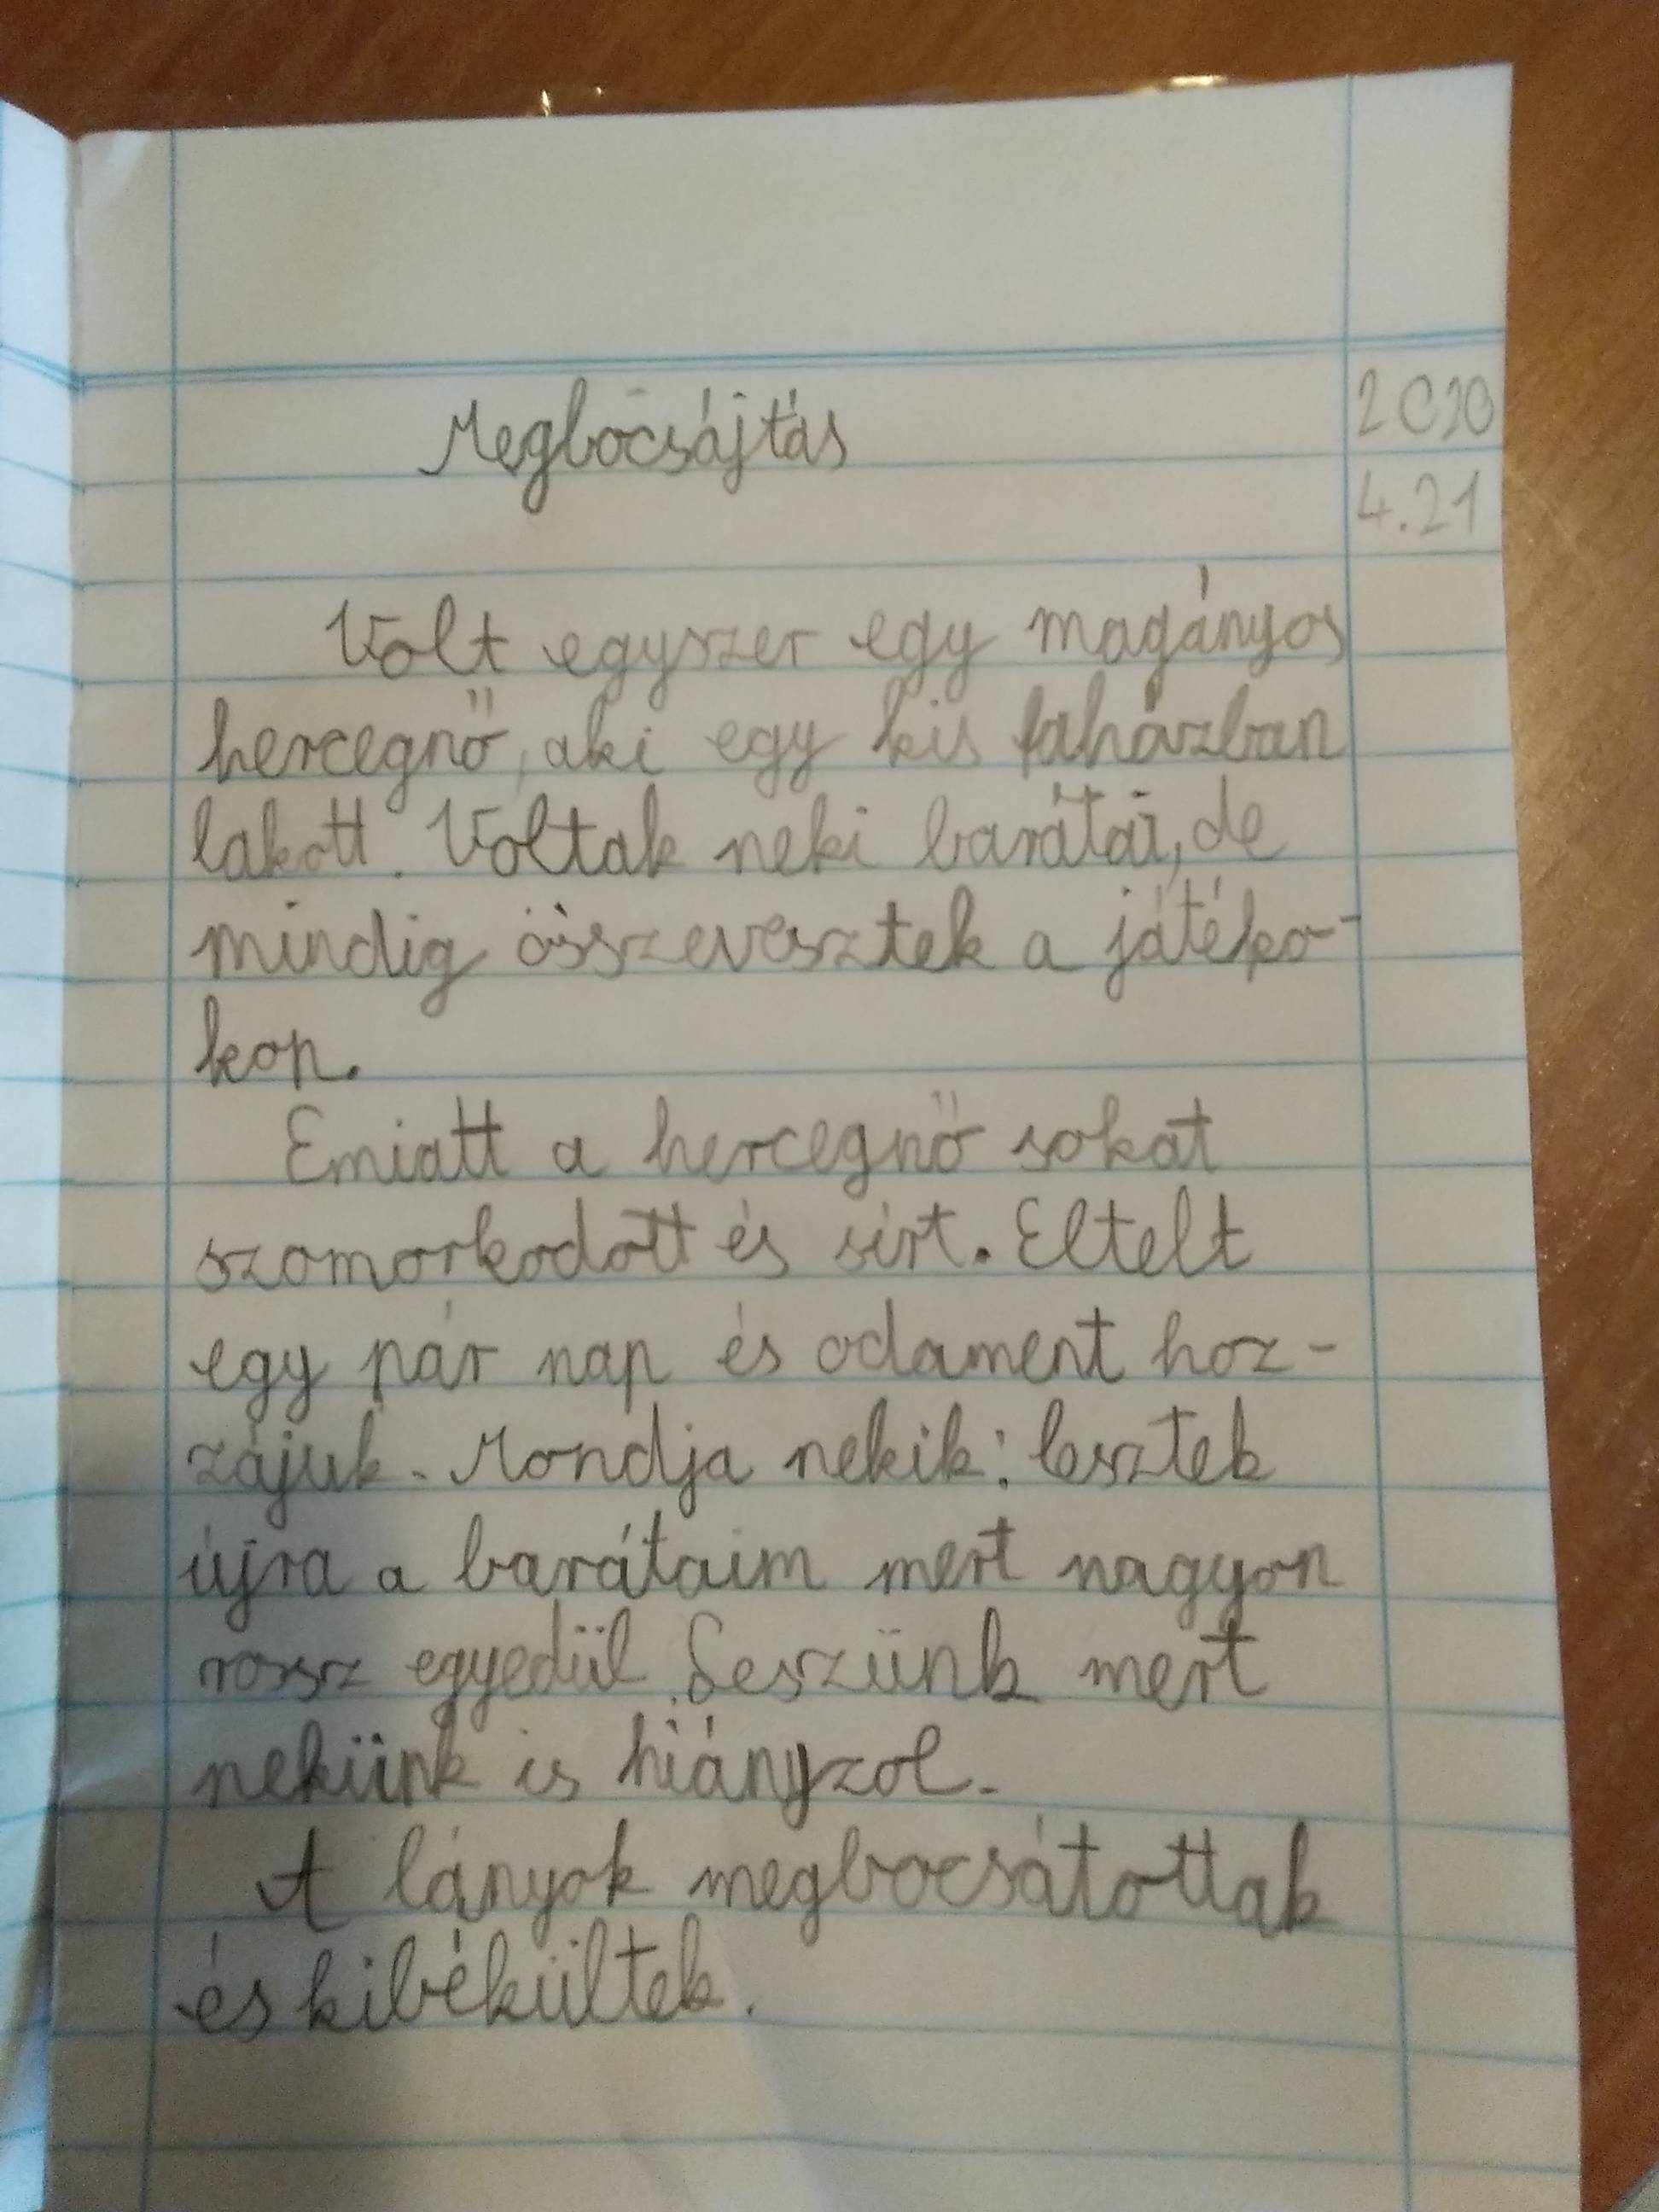 Megbocsájtás
2020
4.21
Volt egyszer egy magányos
hercegnő, aki egy kis faházban
lakott. Voltak neki barátai, de
mindig összevesztek a játéko-
kon.
Emiatt a hercegnő sokat
szomorkodott és sírt. Eltelt
egy pár nap és odament hoz-
zájuk. Mondja nekik: lesztek
újra a barátaim mert nagyon
rossz egyedül. Leszünk mert
nekünk is hiányzol.
A lányok megbocsátottak
és kibékültek.